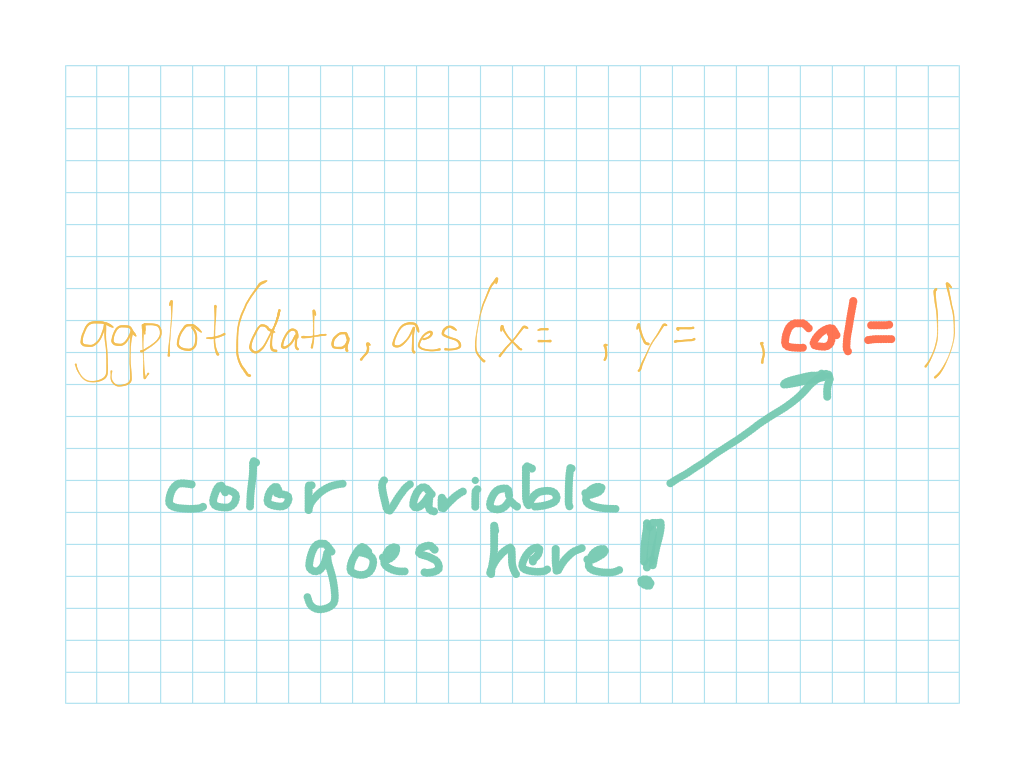 ggplot(data, aes(x= , y= , col= ))
color variable
goes here!